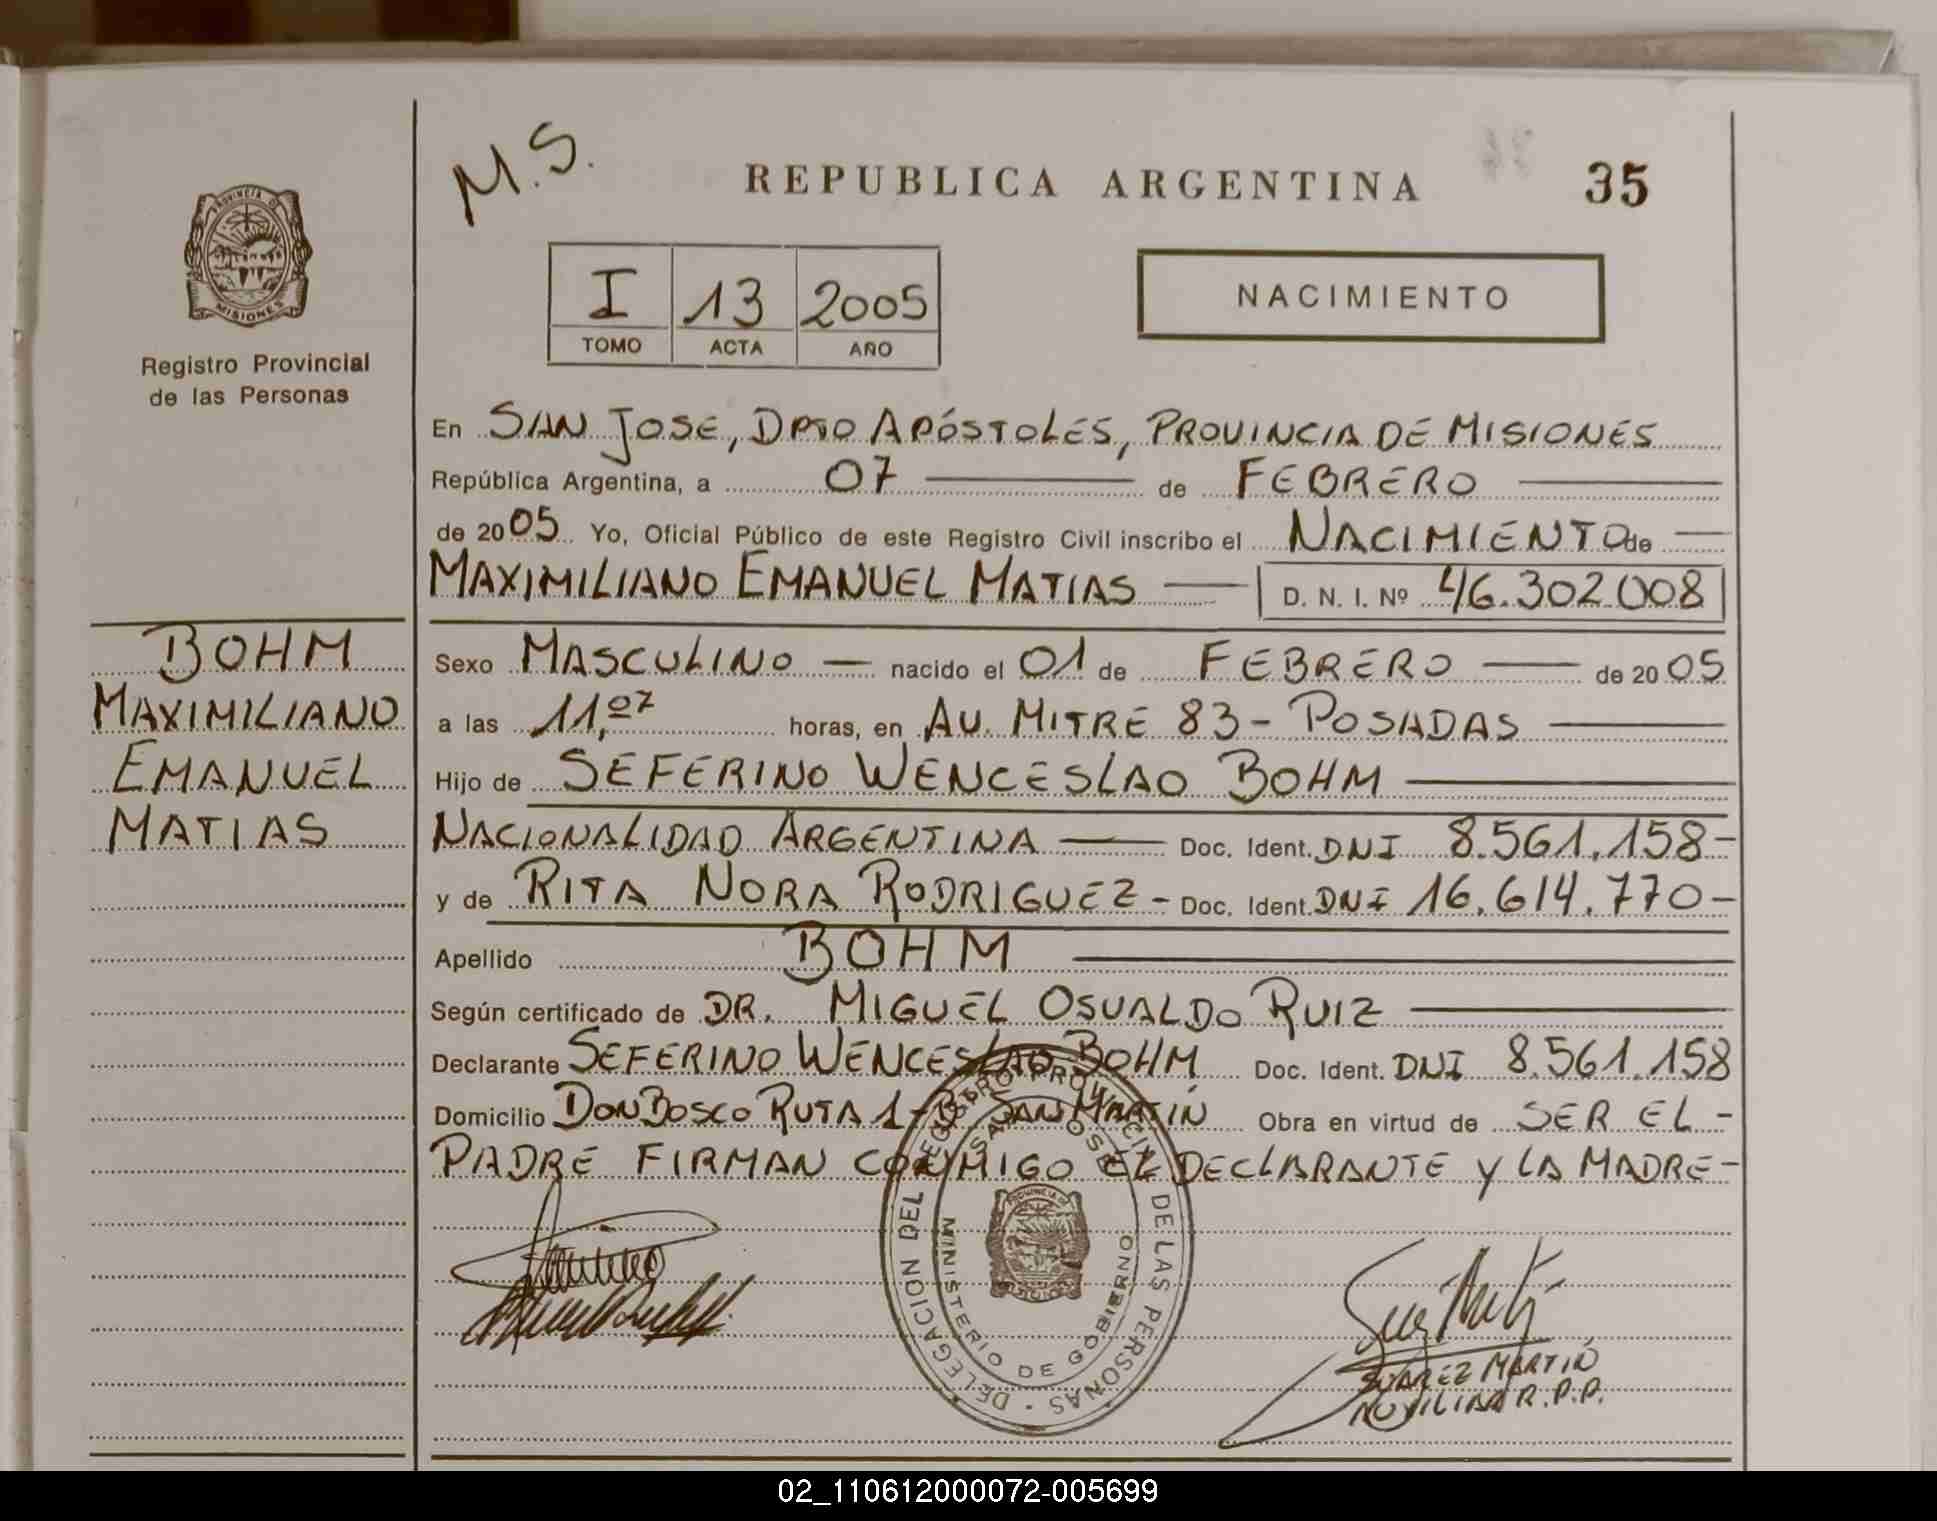 M.S.
REPUBLICA ARGENTINA
35
PROVINCIA DE
MISIONES
Registro Provincial
de las Personas
I 13 2005
TOMO ACTA AÑO
NACIMIENTO
En SAN JOSE, DPTO APÓSTOLES, PROVINCIA DE MISIONES
República Argentina, a 07 de FEBRERO
de 2005 Yo, Oficial Público de este Registro Civil inscribo el NACIMIENTO de
MAXIMILIANO EMANUEL MATIAS — D. N. I. Nº 46.302.008
BOHM
MAXIMILIANO
EMANUEL
MATIAS
Sexo MASCULINO — nacido el 01 de FEBRERO — de 2005
a las 11,07 horas, en AV. MITRE 83 - POSADAS —
Hijo de SEFERINO WENCESLAO BOHM —
NACIONALIDAD ARGENTINA — Doc. Ident. DNI 8.561.158-
y de RITA NORA RODRIGUEZ - Doc. Ident. DNI 16.614.770-
Apellido BOHM —
Según certificado de DR. MIGUEL OSVALDO RUIZ —
Declarante SEFERINO WENCESLAO BOHM Doc. Ident. DNI 8.561.158
Domicilio DON BOSCO RUTA 1 - Bº SAN MARTIN Obra en virtud de SER EL -
PADRE FIRMAN CONMIGO EL DECLARANTE Y LA MADRE -
DELEGACION DEL REGISTRO PROVINCIAL DE LAS PERSONAS
SAN JOSE
MINISTERIO DE GOBIERNO
SUAREZ MARTIN
AUXILIAR R.P.P.
02_110612000072-005699